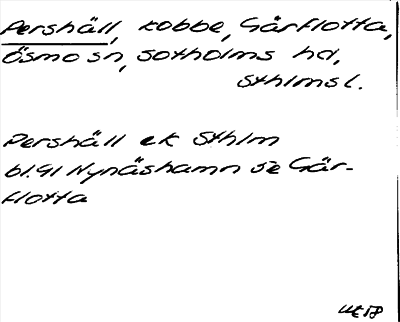 Pershäll, kobbe, Gårflotta,
Ösmo sn, Sotholms hd,
Sthlms l.
Pershäll ek Sthlm
bl.91 Nynäshamn se Går-
flotta